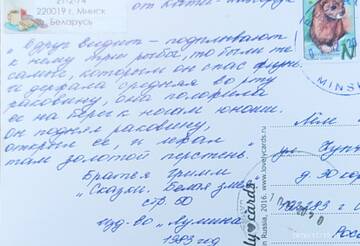 220019 г. Минск
Беларусь
"Вдруг видит - подплывают
к нему три рыбы, то были те
самые, которым он спас жизнь.
И держала средняя во рту
раковину, она положила
ее на берег к ногам юноши.
Он поднял раковину,
открыл ее, и
там золотой перстень."
Братья Гримм
"Сказки. Белая змея"
стр. 50
изд-во "Лумина"
1983 год
MINSK
N
ул.
д. 30
in Russia, 2016. www.lovelycards.ru
ly cards